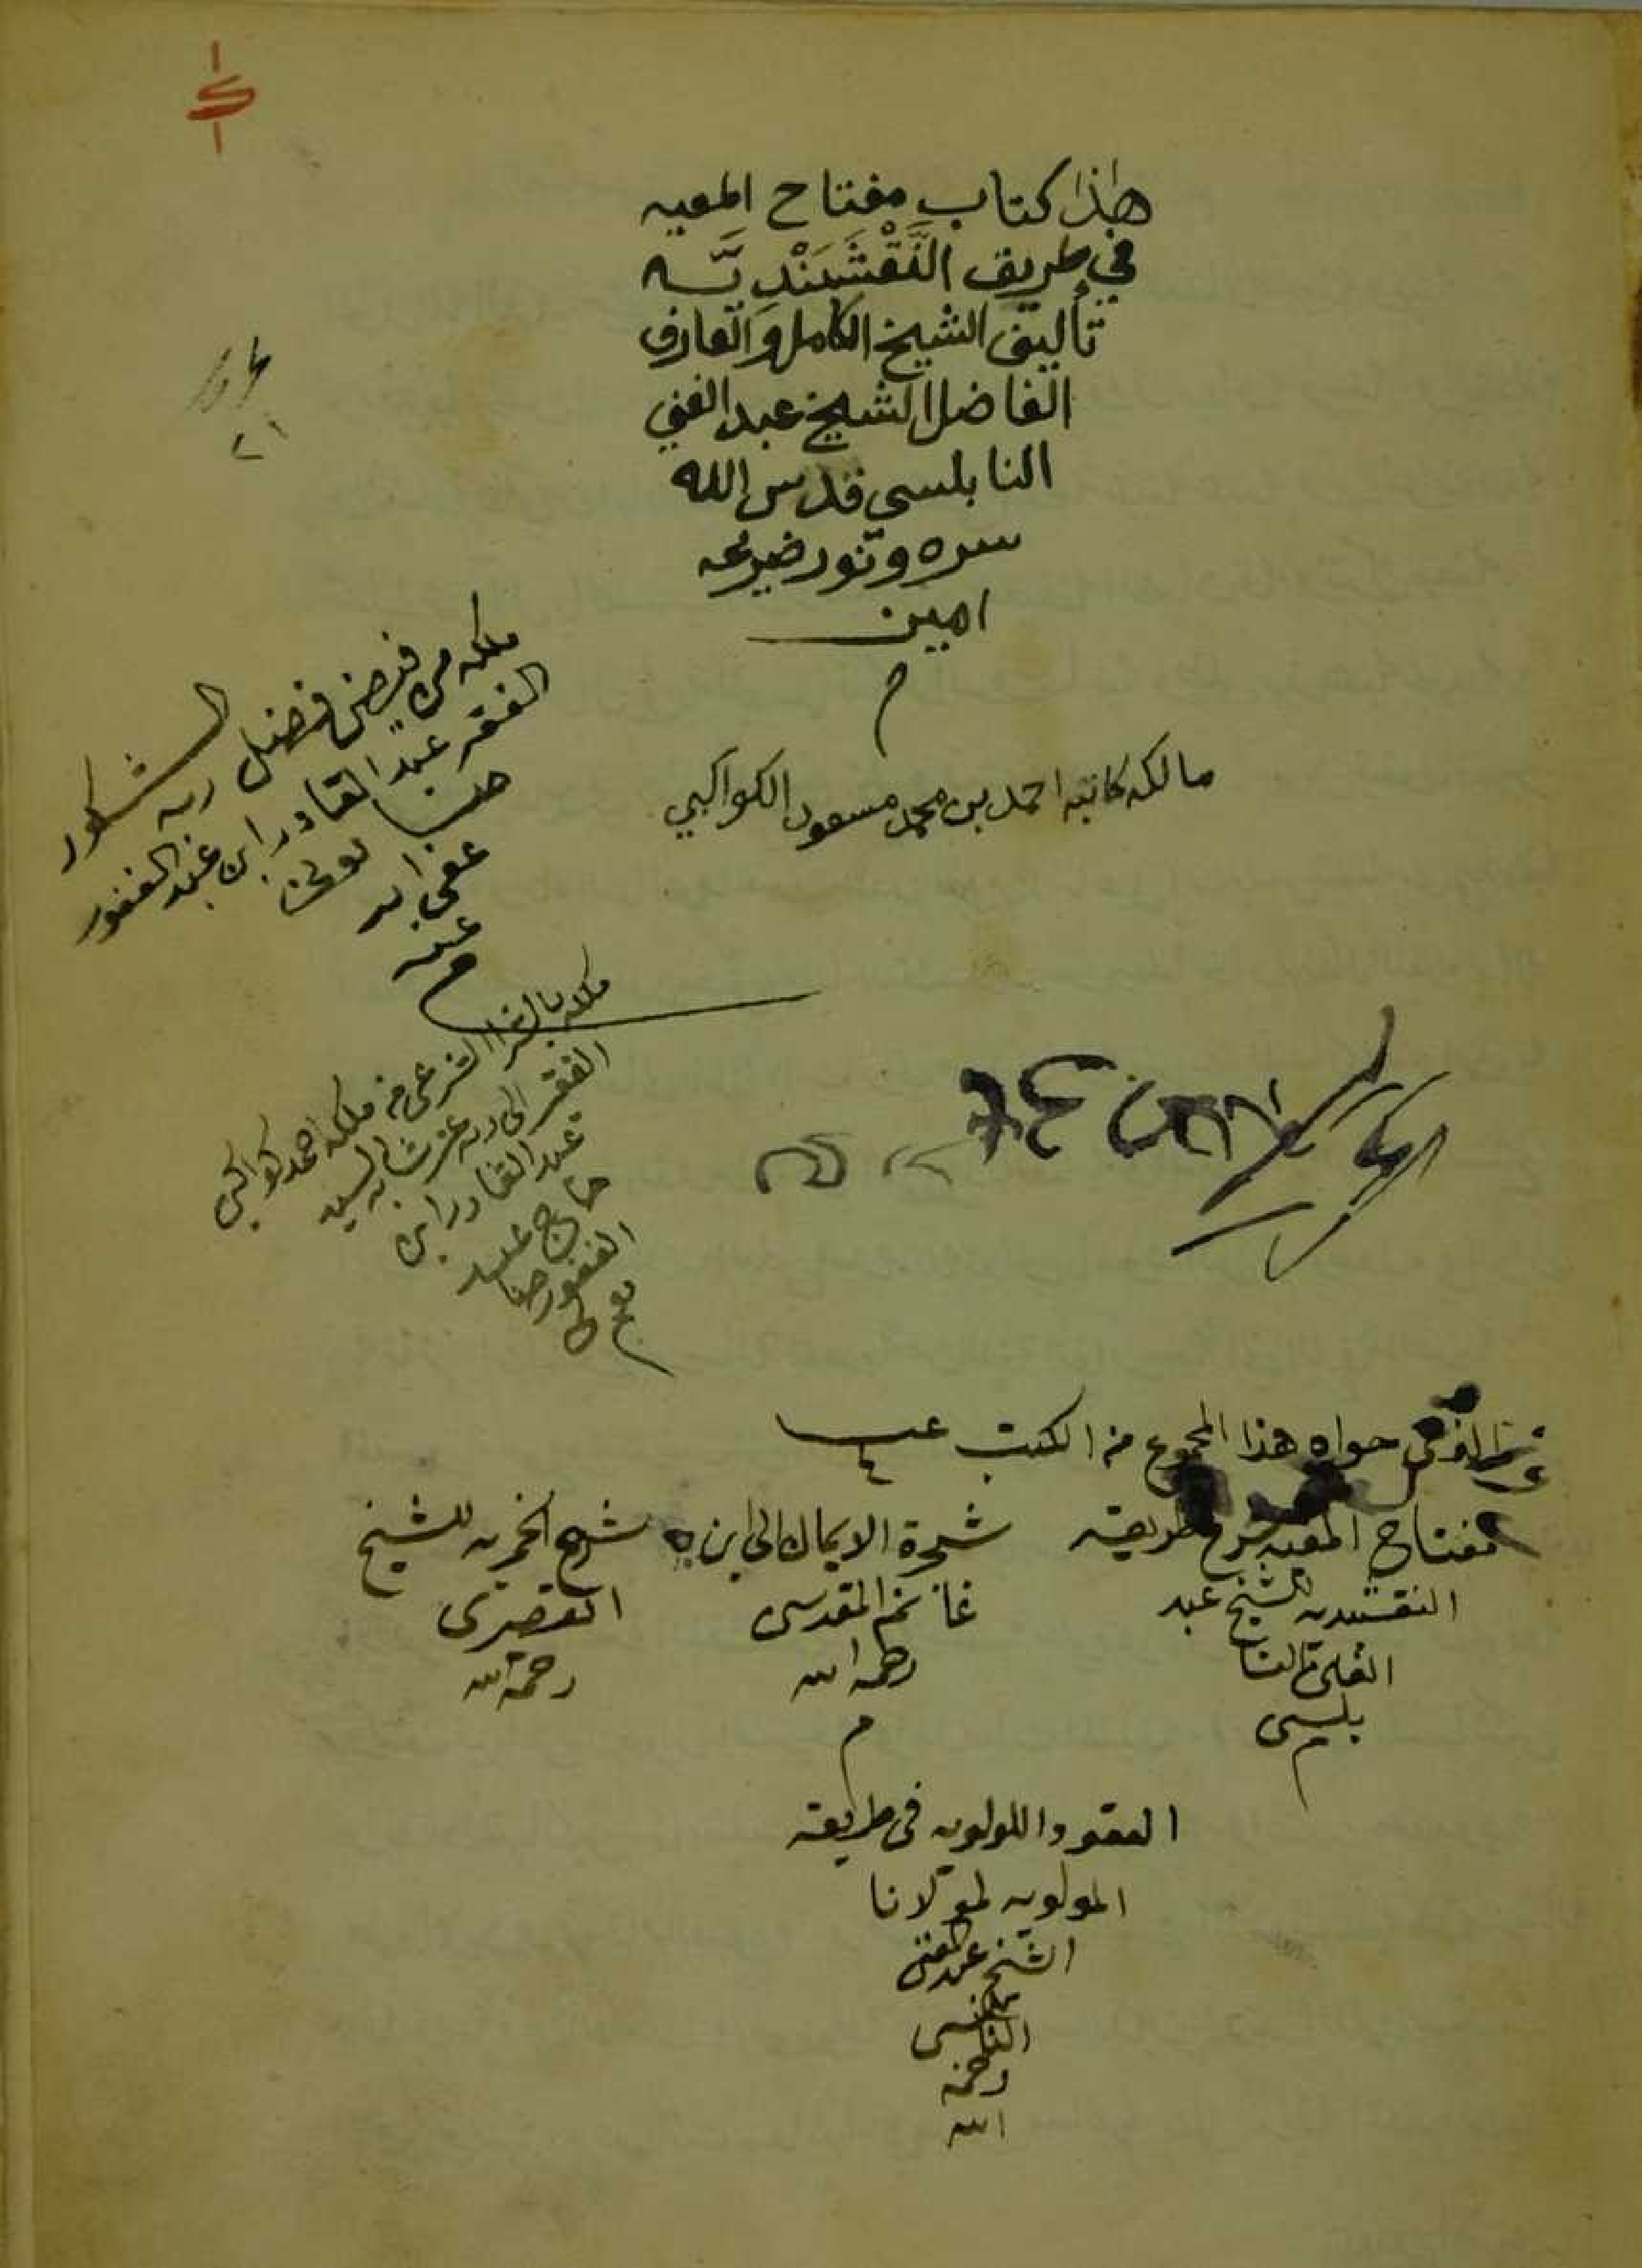 هاذا كتاب مفتاح المعيه
في طريق النَّقْشَبَنْدِيَّه
تأليف الشيخ الكامل والعارف
الفاضل الشيخ عبد الغني
النابلسي قدس الله
سره ونور ضريحه
امين
م
مالكه كاتبه احمد بن محمد مسعود الكواكبي
ملكه من فيض فضل ربه الشكور
الفقر عبد القادر ابن عبد الغفور
عفى الله
عنه
ملكه بالشرا الشرعي من ملكه احمد كواكبي
الفقر الى ربه عز شانه السيد
عبد القادر ابن
حاج عبد
الغفور
الذي حواه هذا المجموع من الكتب عـــ
٤
مفتاح المعيه شرح طريقة
النقشبديه للشيخ عبد
الغني النا
بلسي
م
شجرة الايمان لابن
غانم المقدسي
رحمه الله
م
شرح الخمريه للشيخ
القصري
رحمة الله
العقود اللولويه في طريقة
المولويه لمولانا
الشيخ عبد الغني
النابلسي
رحمه
الله